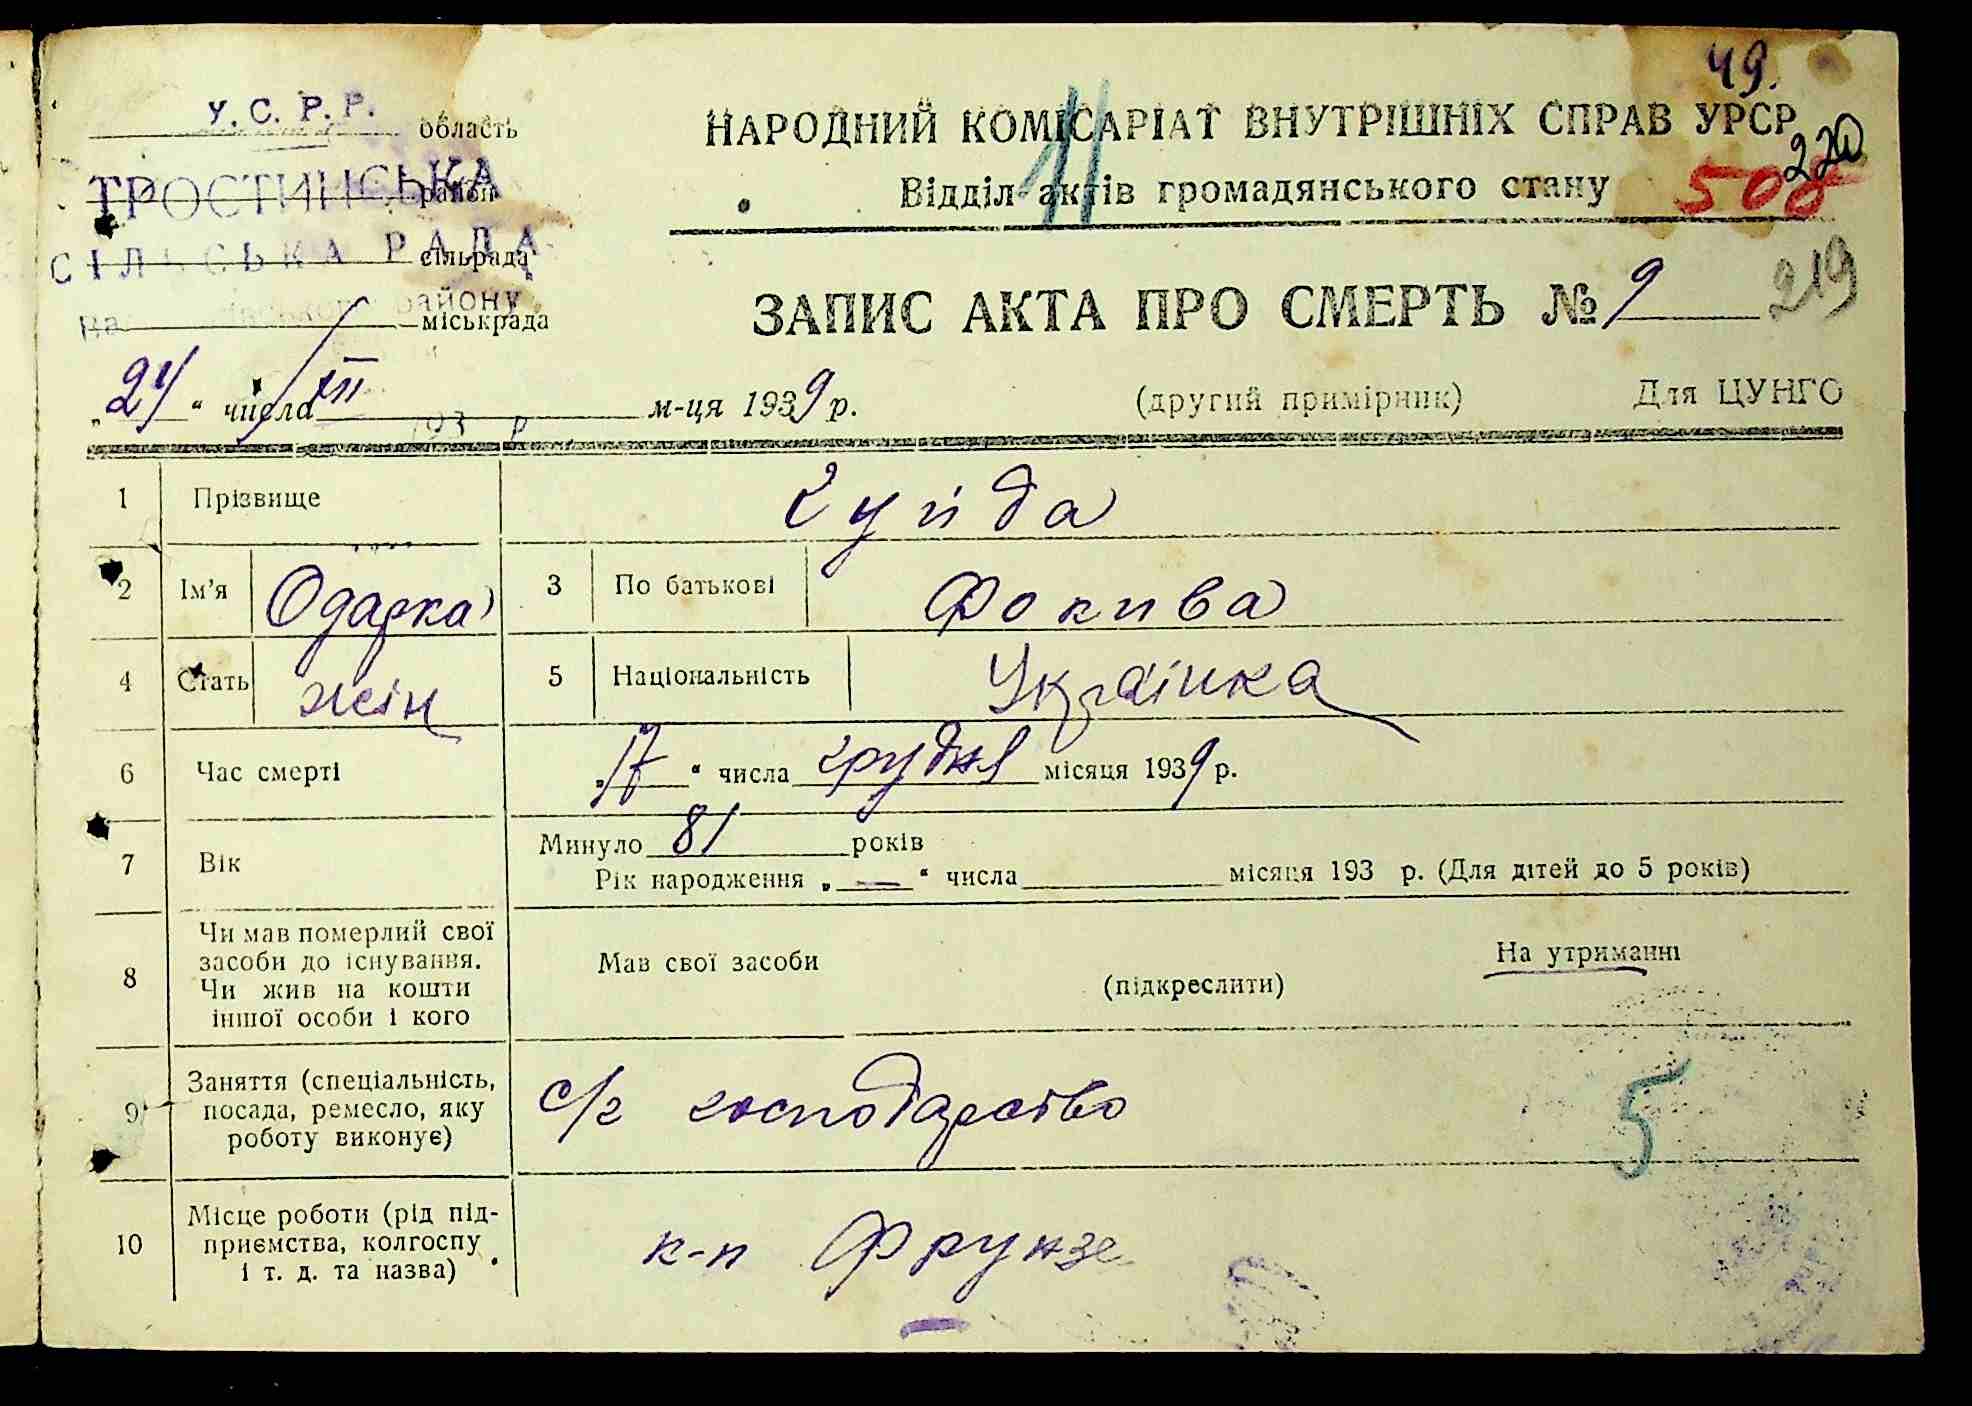 49.
У. С. Р. Р. область
НАРОДНИЙ КОМІСАРІАТ ВНУТРІШНІХ СПРАВ УРСР
220
11
ТРОСТИНСЬКА район
Відділ актів громадянського стану
508
СІЛЬСЬКА РАДА сільрада
району
міськрада
ЗАПИС АКТА ПРО СМЕРТЬ № 9
219
„24“ числа XII м-ця 1939 р.
(другий примірник)
Для ЦУНГО
193 р
1 Прізвище Гуйда
2 Ім'я Одарка 3 По батькові Фокива
4 Стать жін 5 Національність Українка
6 Час смерті „17“ числа грудня місяця 1939 р.
7 Вік Минуло 81 років
Рік народження „—“ числа місяця 193 р. (Для дітей до 5 років)
8 Чи мав померлий свої
засоби до існування.
Чи жив на кошти
іншої особи і кого
Мав свої засоби
(підкреслити)
На утриманні
9 Заняття (спеціальність,
посада, ремесло, яку
роботу виконує)
с/г господарство
5
10 Місце роботи (рід під-
приємства, колгоспу
і т. д. та назва)
к-п Фрунзе